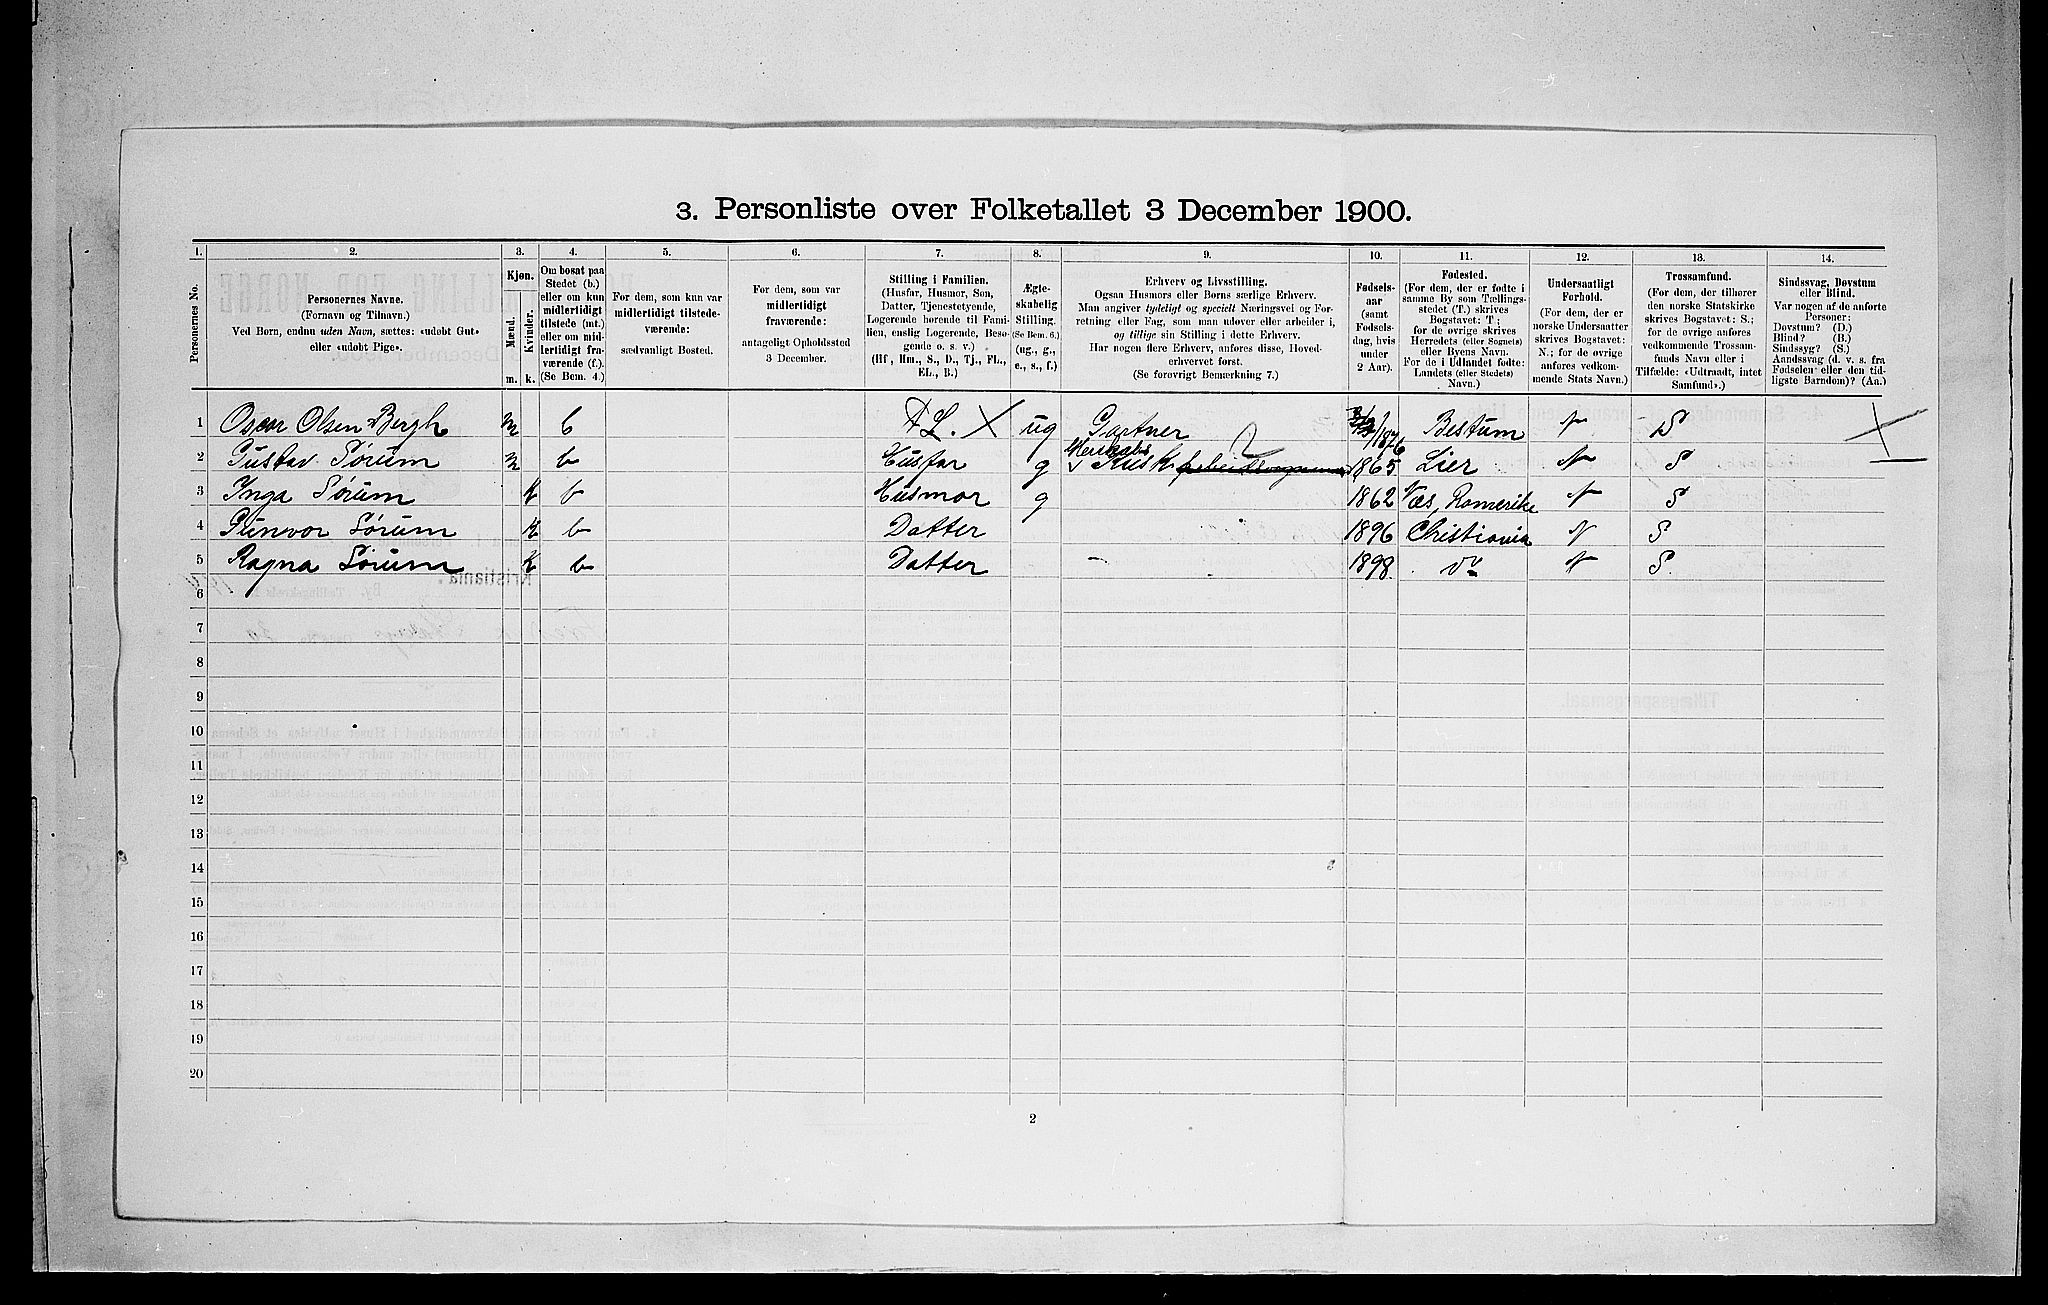 3. Personliste over Folketallet 3 December 1900.
1. 2. 3. 4. 5. 6. 7. 8. 9. 10. 11. 12. 13. 14.
Personernes No.
Personernes Navne.
(Fornavn og Tilnavn.)
Ved Børn, endnu uden Navn, sættes: «udøbt Gut»
eller «udøbt Pige».
Kjøn.
Mænd.
Kvinder.
m. k.
Om bosat paa
Stedet (b.)
eller om kun
midlertidigt
tilstede (mt.)
eller om mid-
lertidigt fra-
værende (f.).
(Se Bem. 4.)
For dem, som kun var
midlertidigt tilstede-
værende:
sædvanligt Bosted.
For dem, som var
midlertidigt
fraværende:
antageligt Opholdssted
3 December.
Stilling i Familien.
(Husfar, Husmor, Søn,
Datter, Tjenestetyende,
Logerende hørende til Fami-
lien, enslig Logerende, Besø-
gende o. s. v.)
(Hf, Hm., S., D., Tj., FL.,
EL., B.)
Ægte-
skabelig
Stilling.
(Se Bem. 6.)
(ug., g.,
e., s., f.)
Erhverv og Livsstilling.
Ogsaa Husmors eller Børns særlige Erhverv.
Man angiver tydeligt og specielt Næringsvei og For-
retning eller Fag, som man udøver eller arbeider i,
og tillige sin Stilling i dette Erhverv.
Har nogen flere Erhverv, anføres disse, Hoved-
erhvervet først.
(Se forøvrigt Bemærkning 7.)
Fødsels-
aar
(samt
Fødsels-
dag, hvis
under
2 Aar).
Fødested.
(For dem, der er fødte i
samme By som Tællings-
stedet (T.) skrives
Bogstavet: T.;
for de øvrige skrives
Herredets (eller Sognets)
eller Byens Navn.
For de i Udlandet fødte:
Landets (eller Stedets)
Navn.)
Undersaatligt
Forhold.
(For dem, der er
norske Undersaatter
skrives Bogstavet:
N.; for de øvrige
anføres vedkom-
mende Stats Navn.)
Trossamfund.
(For dem, der tilhører
den norske Statskirke
skrives Bogstavet: S.;
for de øvrige anføres
vedkommende Trossam-
funds Navn eller i
Tilfælde: «Udtraadt, intet
Samfund».)
Sindssvag, Døvstum
eller Blind.
Var nogen af de anførte
Personer:
Døvstum? (D.)
Blind? (B.)
Sindssyg? (S.)
Aandssvag (d. v. s. fra
Fødselen eller den tid-
ligste Barndom)? (Aa.)
1 Oscar Olsen Bergh m b L. X ug Gartner Bestum N S
2 Gustav Sørum m b Husfar g Kusk 1865 Lier N S
3 Inga Sørum K b Husmor g 1862 Næs, Romerike N S
4 Gunvor Sørum K b Datter 1896 Christiania N S
5 Ragna Sørum K b Datter - 1898 do N S.
6
7
8
9
10
11
12
13
14
15
16
17
18
19
20
2